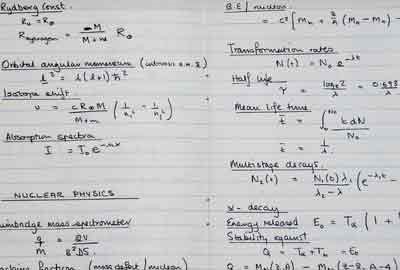 Rydberg Const.
R₀ = R∞
R_Hydrogen = M / M+m R∞
Orbital angular momentum
l² = l(l+1) ħ²
Isotope shift.
υ = cR∞M / M+m ( 1/n₁² - 1/n₂² )
Absorption spectra
I = I₀ e^-
NUCLEAR PHYSICS
mass spectrometer
q/m = 2V / B²D
fraction (mass defect / nucleon)
B.E / nucleon
= c² [ Mn + (MH - Mn) -
Transformation rates.
N(t) = N₀ e^-λt
Half life
τ = loge2 / λ = 0.693
Mean life time
t̄ = ∫ t dN / N₀
t̄ = 1/λ
Multistage decays.
N₂(t) = N₁(0) λ₁ / λ₂ - λ₁ ( e^-λ₁t -
α - decay
Energy released E₀ = Tα ( 1 +
Stability against
Q = Tα + Tb = E₀